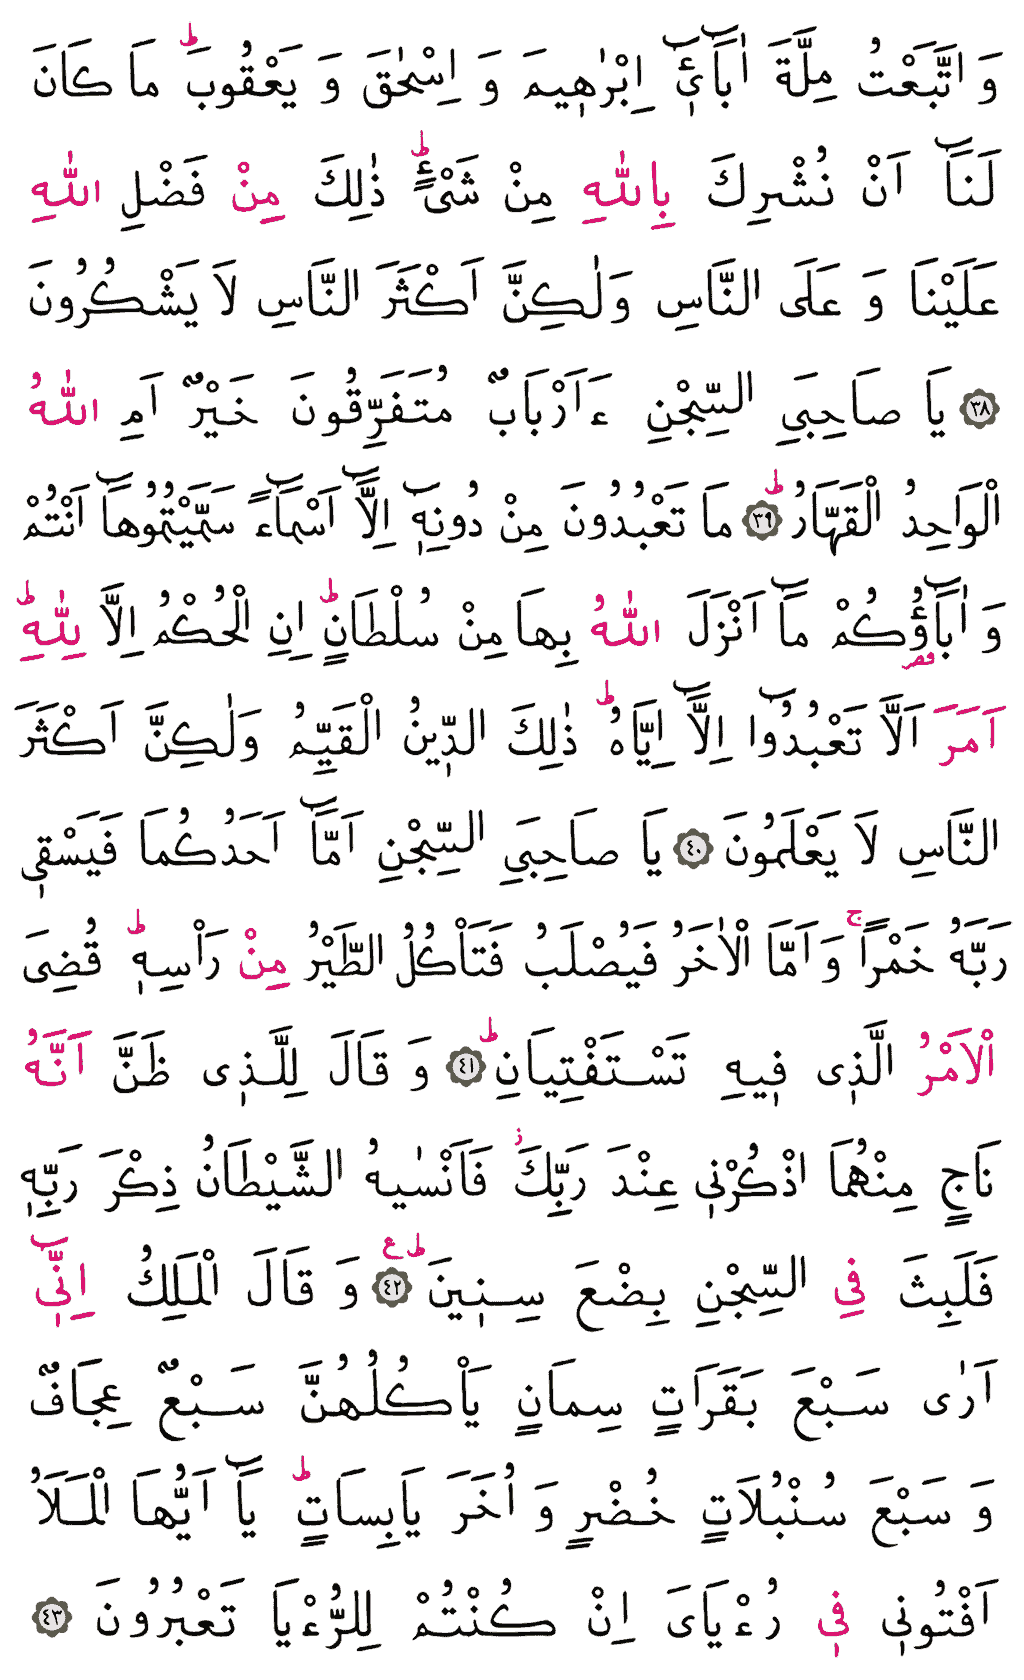 وَ اتَّبَعْتُ مِلَّةَ اٰبَٓاء۪ٓي اِبْرٰه۪يمَ وَ اِسْحٰقَ وَ يَعْقُوبَؕ مَا كَانَ
لَنَٓا اَنْ نُشْرِكَ بِاللّٰهِ مِنْ شَىْءٍؕ ذٰلِكَ مِنْ فَضْلِ اللّٰهِ
عَلَيْنَا وَ عَلَى النَّاسِ وَلٰكِنَّ اَكْثَرَ النَّاسِ لَا يَشْكُرُونَ
﴿٣٨﴾ يَا صَاحِبَىِ السِّجْنِ ءَاَرْبَابٌ مُتَفَرِّقُونَ خَيْرٌ اَمِ اللّٰهُ
الْوَاحِدُ الْقَهَّارُؕ ﴿٣٩﴾ مَا تَعْبُدُونَ مِنْ دُونِه۪ٓ اِلَّٓا اَسْمَٓاءً سَمَّيْتُمُوهَٓا اَنْتُمْ
وَ اٰبَٓاؤُ۬كُمْ مَٓا اَنْزَلَ اللّٰهُ بِهَا مِنْ سُلْطَانٍؕ اِنِ الْحُكْمُ اِلَّا لِلّٰهِؕ
اَمَرَ اَلَّا تَعْبُدُٓوا اِلَّٓا اِيَّاهُؕ ذٰلِكَ الدّ۪ينُ الْقَيِّمُ وَلٰكِنَّ اَكْثَرَ
النَّاسِ لَا يَعْلَمُونَ ﴿٤٠﴾ يَا صَاحِبَىِ السِّجْنِ اَمَّٓا اَحَدُكُمَا فَيَسْق۪ي
رَبَّهُ خَمْرًاۚ وَ اَمَّا الْاٰخَرُ فَيُصْلَبُ فَتَأْكُلُ الطَّيْرُ مِنْ رَأْسِه۪ؕ قُضِىَ
الْاَمْرُ الَّذ۪ى ف۪يهِ تَسْتَفْتِيَانِؕ ﴿٤١﴾ وَ قَالَ لِلَّذ۪ى ظَنَّ اَنَّهُ
نَاجٍ مِنْهُمَا اذْكُرْن۪ي عِنْدَ رَبِّكَؗ فَاَنْسٰيهُ الشَّيْطَانُ ذِكْرَ رَبِّه۪
فَلَبِثَ فِي السِّجْنِ بِضْعَ سِن۪ينَؕ ع ﴿٤٢﴾ وَ قَالَ الْمَلِكُ اِنّ۪ٓي
اَرٰى سَبْعَ بَقَرَاتٍ سِمَانٍ يَأْكُلُهُنَّ سَبْعٌ عِجَافٌ
وَ سَبْعَ سُنْبُلَاتٍ خُضْرٍ وَ اُخَرَ يَابِسَاتٍؕ يَٓا اَيُّهَا الْمَلَاُ
اَفْتُون۪ي ف۪ي رُءْيَاىَ اِنْ كُنْتُمْ لِلرُّءْيَا تَعْبُرُونَ ﴿٤٣﴾